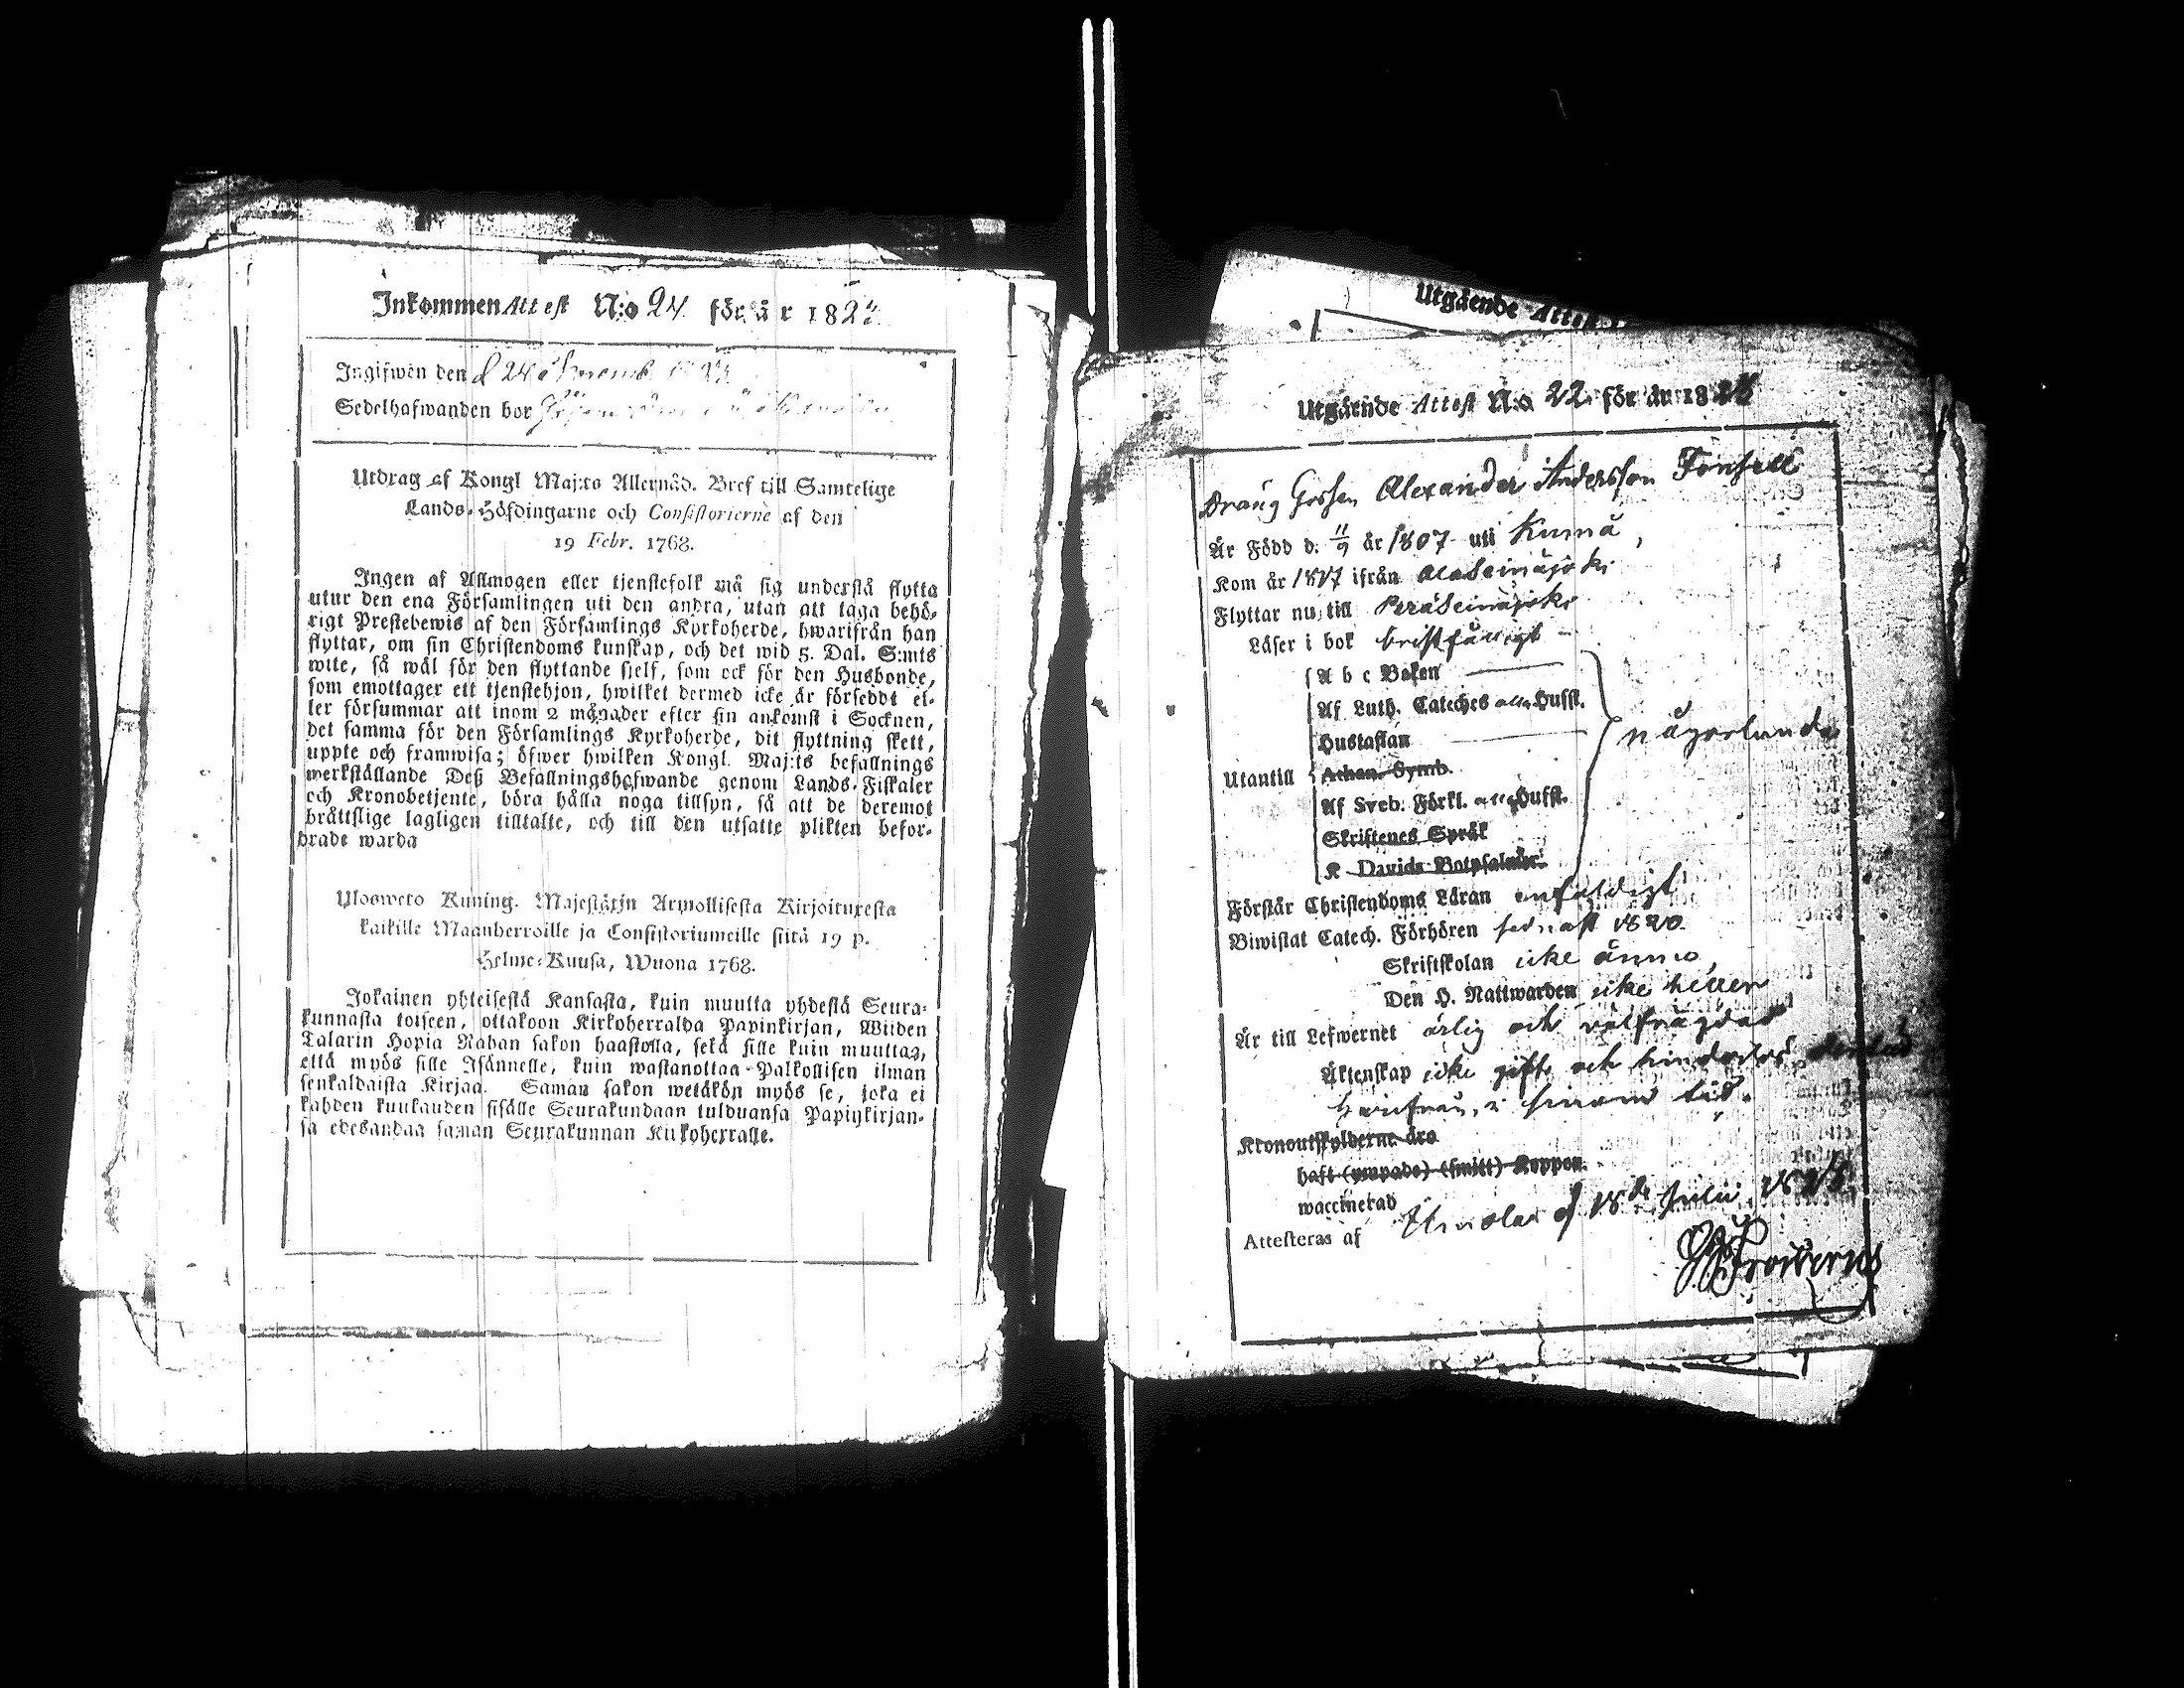 Inkommen Attest N:o 24 för år 182
Ingifwen den d 24
Sedelhafwanden bor
Utdrag af Kongl Maj:ts Allernåd. Bref till Samtelige
Lands-Höfdingarne och Consistorierne af den
19 Febr. 1768.
Ingen af Allmogen eller tjenstefolk må sig understå flytta
utur den ena Församlingen uti den andra, utan att taga behö-
rigt Prestebewis af den Församlings Kyrkoherde, hwarifrån han
flyttar, om sin Christendoms kunskap, och det wid 5. Dal. S:mts
wite, så wäl för den flyttande sjelf, som ock för den Husbonde,
som emottager ett tjenstehjon, hwilket dermed icke är försedt el-
ler försummar att inom 2 månader efter sin ankomst i Socknen,
det samma för den Församlings Kyrkoherde, dit flyttning skett,
uppte och framwisa; öfwer hwilken Kongl. Maj:ts befallnings
werkställande Deß Befallningshafwande genom Lands-Fiskaler
och Kronobetjente, böra hålla noga tillsyn, så att de deremot
bråttslige lagligen tilltalte, och till den utsatte plikten befor-
drade warda
Ulosweto Kuning. Majestätin Armollisesta Kirjoituxesta
kaikille Maanherroille ja Consistoriumeille siitä 19 p.
Helme-Kuusa, Wuona 1768.
Jokainen yhteisestä Kansasta, kuin muutta yhdestä Seura-
kunnasta toiseen, ottakoon Kirkoherralda Papinkirjan, Wiiden
Talarin Hopia Rahan sakon haastolla, sekä sille kuin muuttaa,
että myös sille Isännelle, kuin wastanottaa Palkollisen ilman
senkaldaista Kirjaa. Saman sakon wetäkön myös se, joka ei
kahden kuukauden sisälle Seurakundaan tulduansa Papinkirjan-
sa edesandaa saman Seurakunnan Kirkoherralle.
Utgående Attest
Utgående Attest N:o 22 för år 18
Dräng Gossen Alexander Andersson
Är Född d. 11/9 år 1807 uti Kumå,
Kom år 1817 ifrån Alaseinäjoki
Flyttar nu till Peräseinäjoki
Läser i bok bristfälligt
A b c Boken
Af Luth. Cateches alla Hufst.
Hustaflan
någorlunda
Utantill Athan. Symb.
Af Sveb. Förkl. alla Hufst.
Skriftenes Språk
K Davids Botpsalmer.
Förstår Christendoms Läran enfaldigt
Biwistat Catech. Förhören sednast 1820.
Skriftskolan icke ännu,
Den H. Nattwarden icke heller
Är till Lefwernet ärlig och välfrägdad
Äktenskap icke gift och hinderlös,
härifrån, i sinom tid.
Kronoutskylderne äro
haft (ympade) (smitt) Koppor.
waccinerad
Attesteras af d 18de Julii